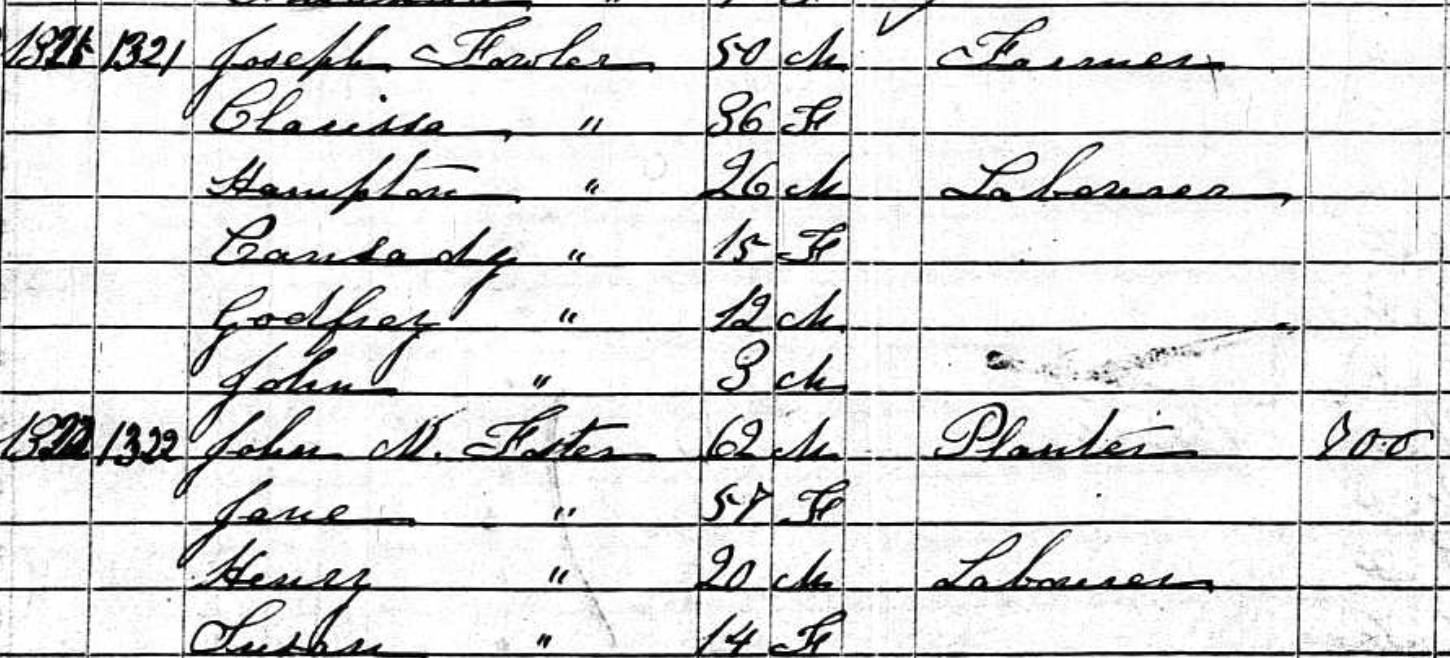 1321 1321 Joseph Fowler 50 M Farmer
Clarissa " 36 F
Hampton " 26 M Laborer
" 15 F
Godfrey " 12 M
John " 3 M
1322 1322 John M. Foster 62 M Planter 700
Jane " 57 F
Henry " 20 M Laborer
Susan " 14 F